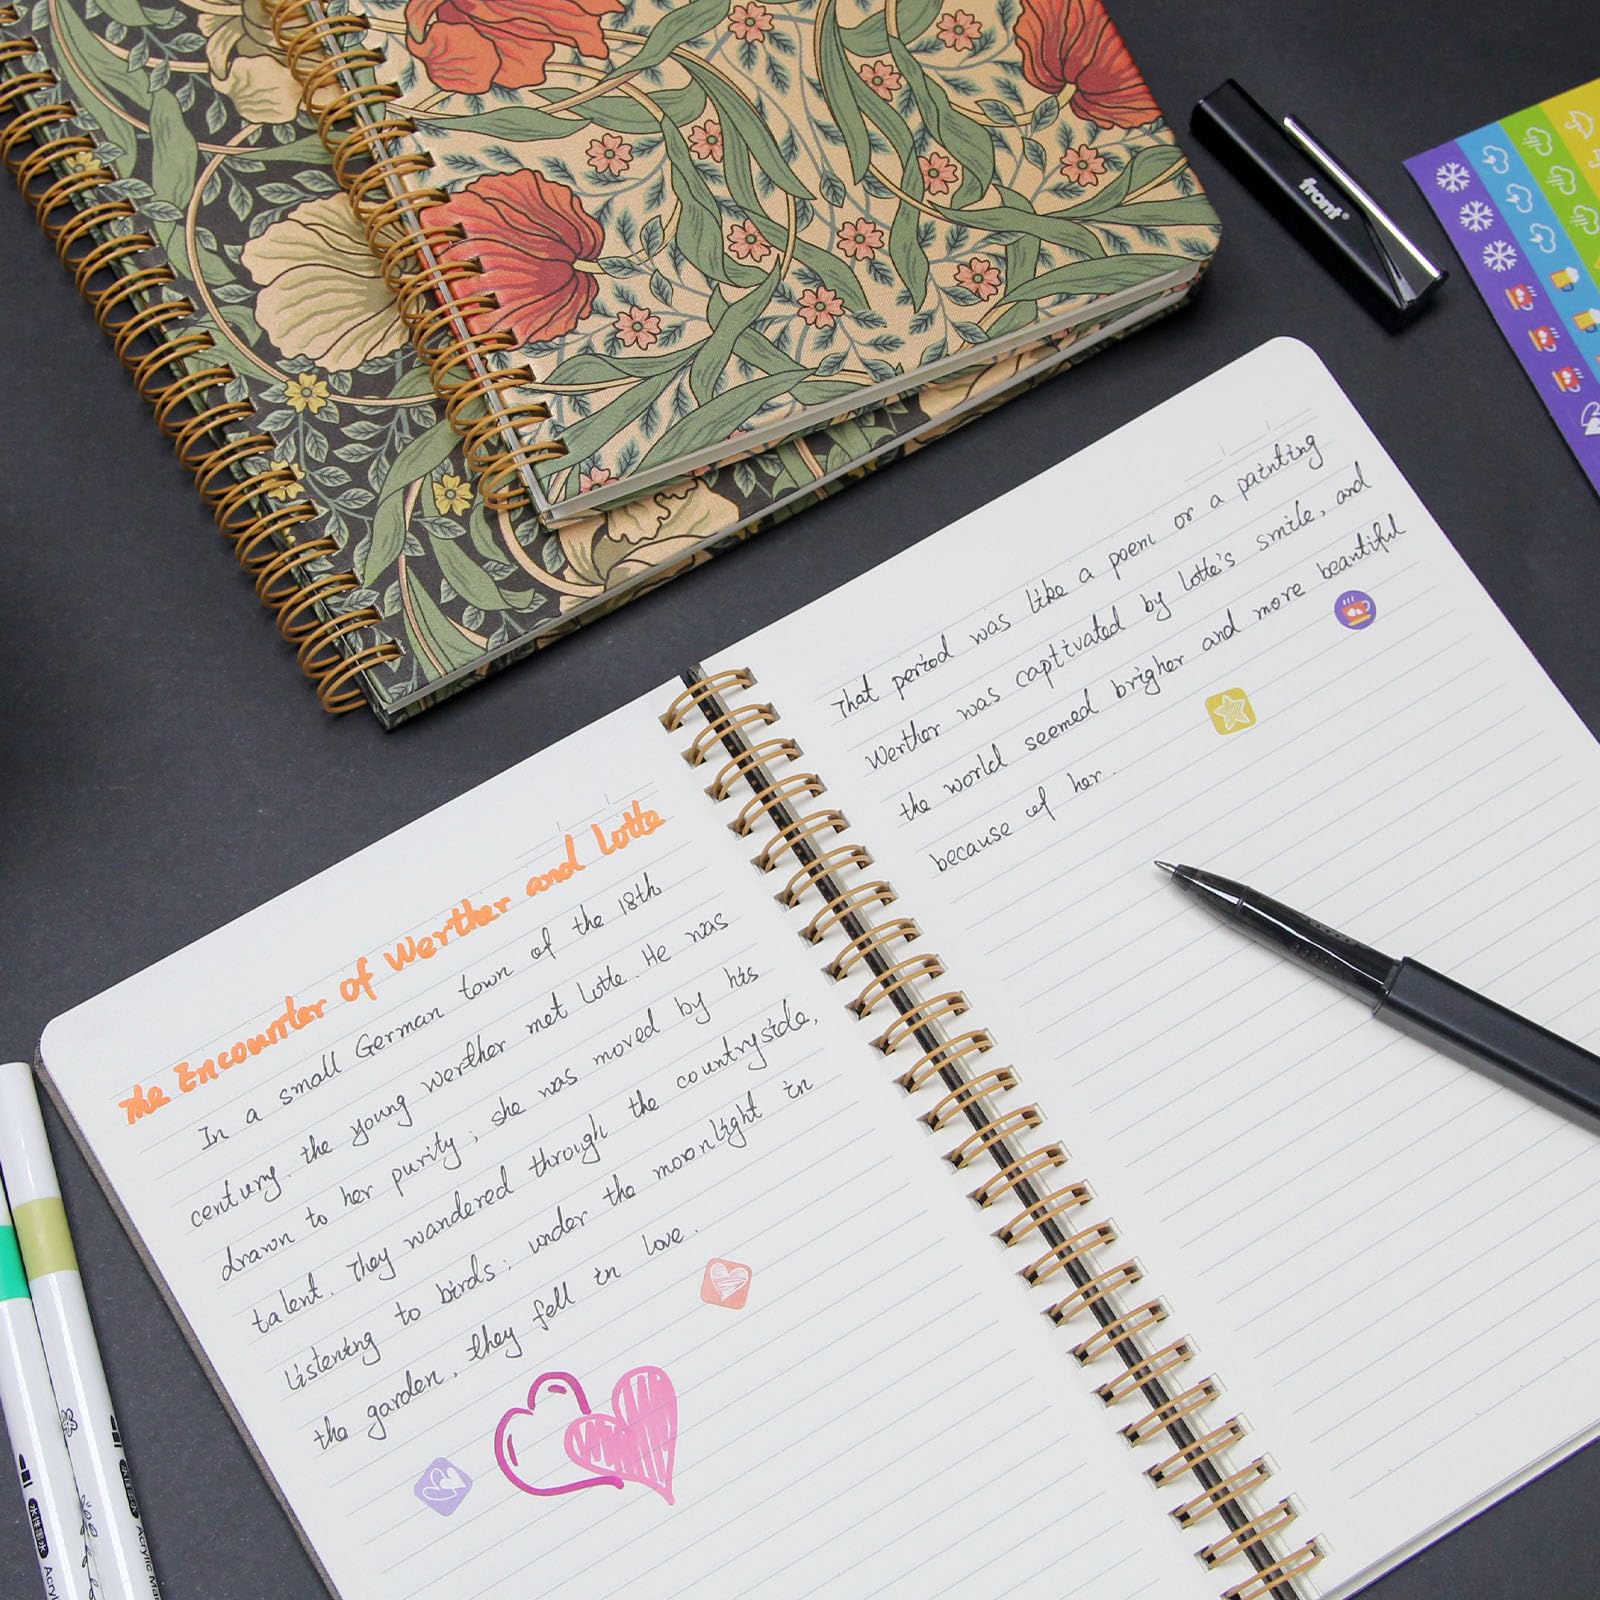 The Encounter of Werther and Lotte
In a small German town of the 18th
century. the young werther met Lotte. He was
drawn to her purity; she was moved by his
talent. They wandered through the countryside,
Listening to birds; under the moonlight in
the garden, they fell in love.
That period was like a poem or a painting
Werther was captivated by Lotte's smile, and
the world seemed brigher and more beautiful
because of her.
front®
水性墨水
Acrylic Mar
水性墨水
Acryl